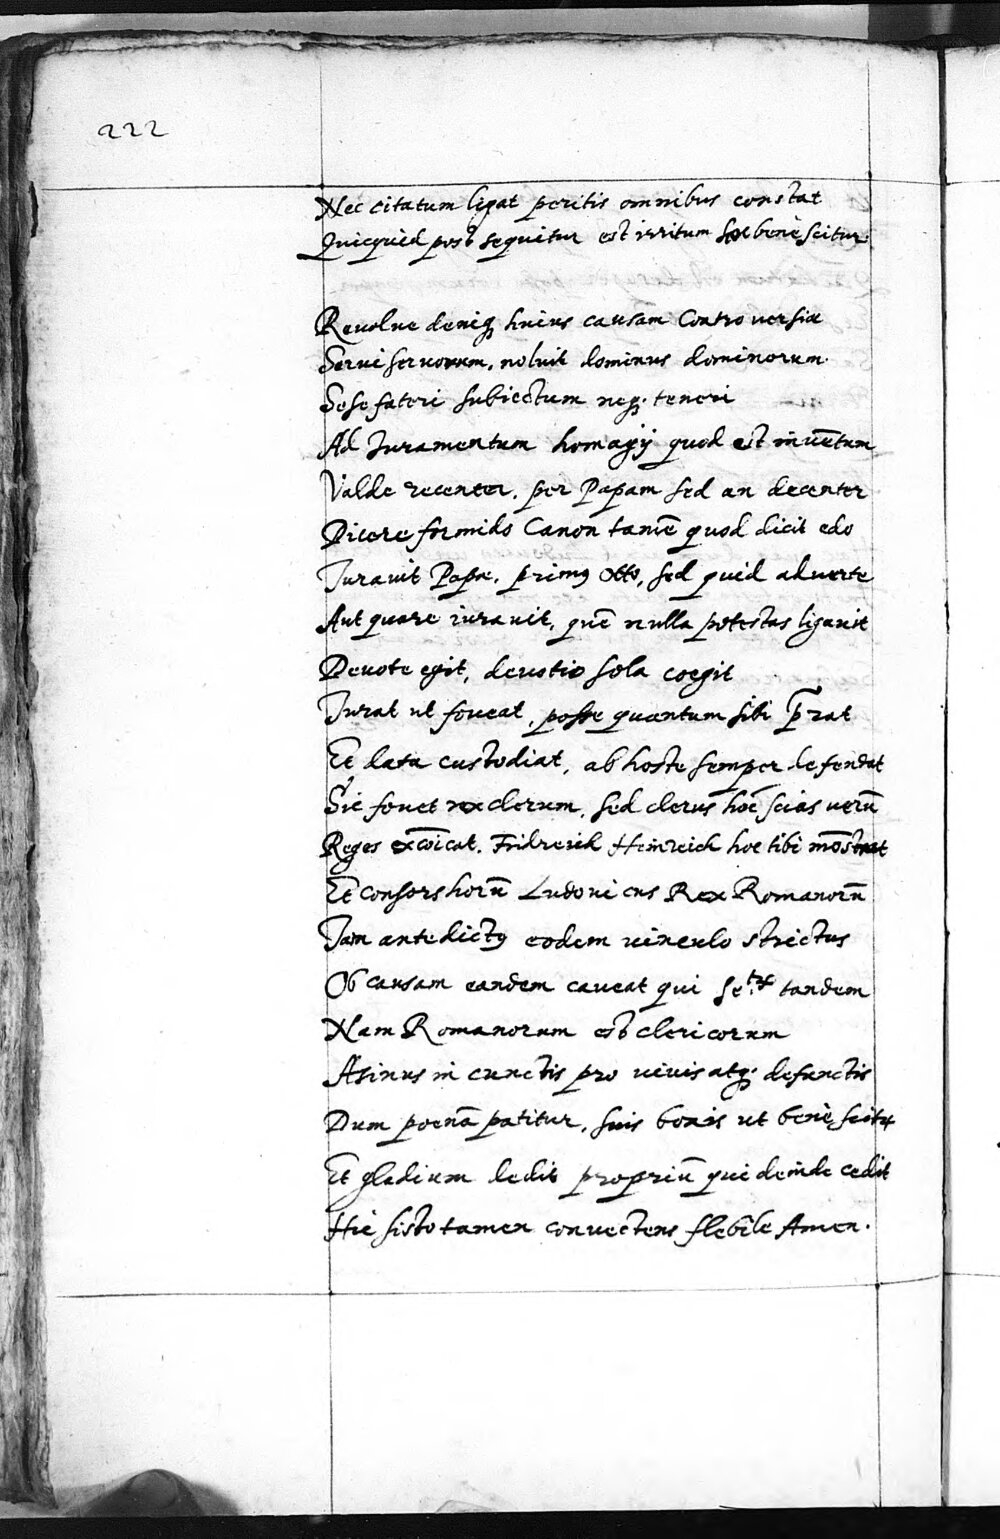 222
Nec citatum ligat peritis omnibus constat
Quicquid post sequitur est irritum hoc benè scitur.
Reuolue deniq; huius causam Controversiæ
Serui seruorum, noluit dominus dominorum.
Sese fateri subiectum neq; teneri
Ad Juramentum homagij quod est invētum
Valde recenter, per Papam sed an decenter
Dicere formido Canon tamē quod dicit edo
Jurauit Papæ, primꝰ Otto, sed quid aduerte
Aut quare iurauit, quē nulla potestas ligauit
Deuote egit, deuotio sola coegit
Jurat ut foueat, posse quantum sibi p̄rat
Et data custodiat, ab hoste semper defendat
Sic fouet rex clerum, sed clerus hoc scias uerū
Reges excōicat. Fridreich Heinreich hoc tibi mōstrat
Et consors horū Ludouicus Rex Romanorū
Jam antedictꝰ eodem uinculo strictus
Ob causam eandem caveat qui tandem
Nam Romanorum est clericorum
Asinus in cunctis pro uiuis atq; defunctis
Dum poenā patitur, suis bonis ut benè scitur
Et gladium dedit propriū qui deinde cedit
Hic sisto tamen convectens flebile Amen.